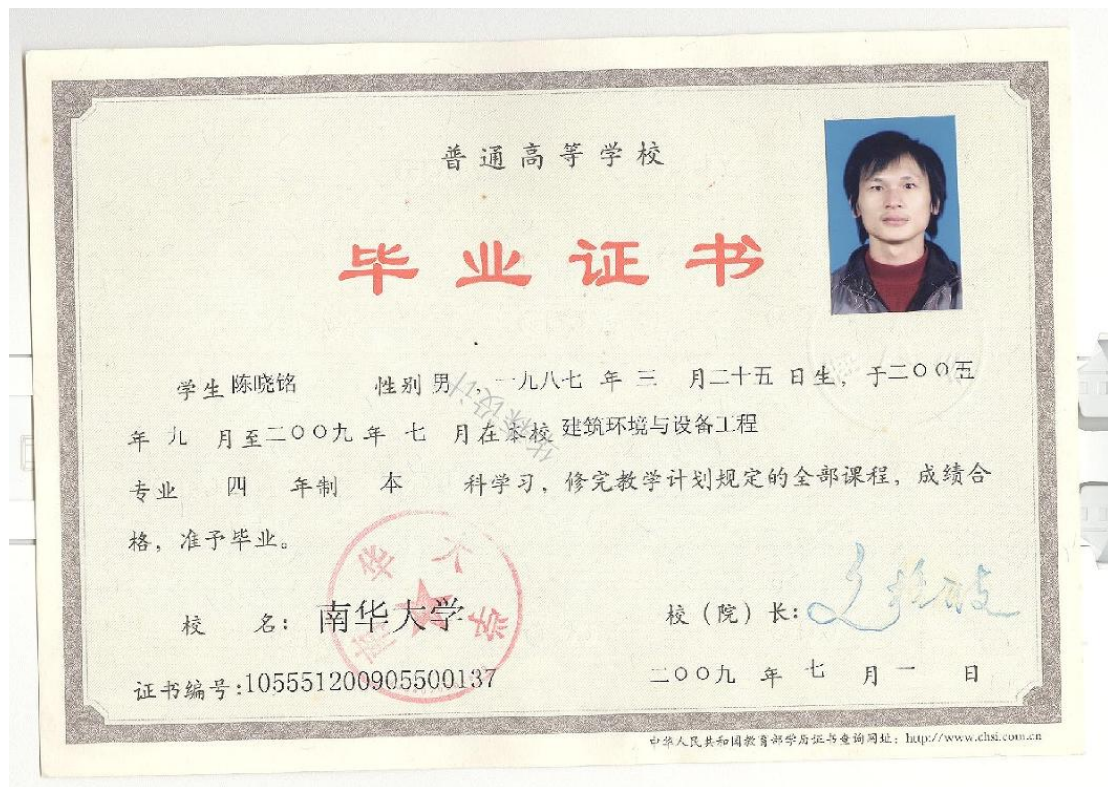 普通高等学校
毕业证书
学生 陈晓铭 性别 男 ，一九八七 年 三 月二十五 日生，于二〇〇五
年 九 月至二〇〇九 年 七 月在本校 建筑环境与设备工程
专业 四 年制 本 科学习，修完教学计划规定的全部课程，成绩合
格，准予毕业。
南华大学
校 名： 南华大学
校（院）长：
证书编号：105551200905500137
二〇〇九 年 七 月 一 日
中华人民共和国教育部学历证书查询网址：http://www.chsi.com.cn